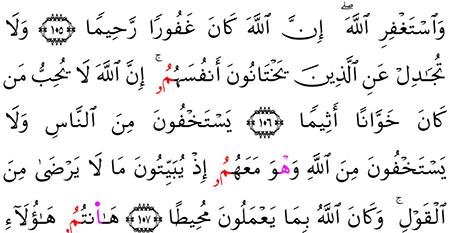 وَٱسۡتَغۡفِرِ ٱللَّهَۖ إِنَّ ٱللَّهَ كَانَ غَفُورٗا رَّحِيمٗا ١٠٥ وَلَا
تُجَٰدِلۡ عَنِ ٱلَّذِينَ يَخۡتَانُونَ أَنفُسَهُمُۥۚ إِنَّ ٱللَّهَ لَا يُحِبُّ مَن
كَانَ خَوَّانًا أَثِيمٗا ١٠٦ يَسۡتَخۡفُونَ مِنَ ٱلنَّاسِ وَلَا
يَسۡتَخۡفُونَ مِنَ ٱللَّهِ وَهۡوَ مَعَهُمُۥ إِذۡ يُبَيِّتُونَ مَا لَا يَرۡضَىٰ مِنَ
ٱلۡقَوۡلِۚ وَكَانَ ٱللَّهُ بِمَا يَعۡمَلُونَ مُحِيطًا ١٠٧ هَٰٓأَنتُمُۥ هَٰٓؤُلَآءِ